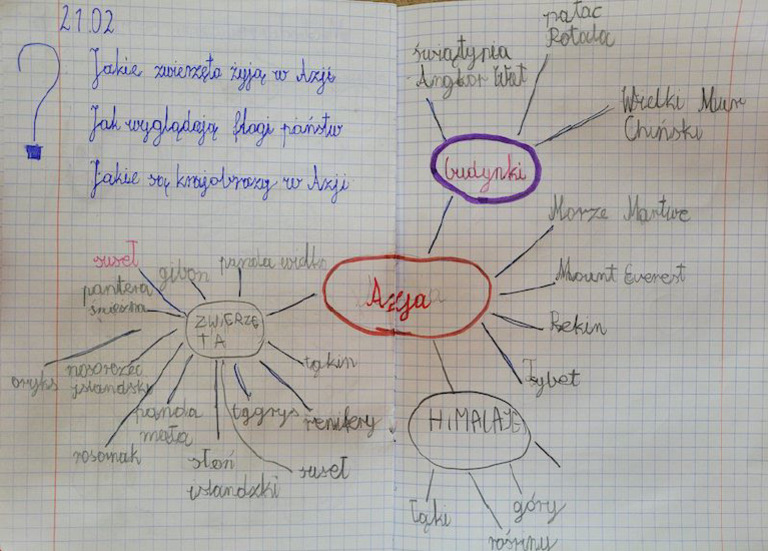 21.02
?
Jakie zwierzęta żyją w Azji
Jak wyglądają flagi państw
Jakie są krajobrazy w Azji
świątynia
Angkor Wat
pałac
Potala
Wielki Mur
Chiński
budynki
Azja
Morze Martwe
Mount Everest
Pekin
Tybet
HIMALAJE
łąki
góry
rośliny
ZWIERZĘ
TA
suseł
gibon
panda wielka
pantera
śnieżna
oryks
nosorożec
rosomak
panda
mała
słoń
tygrys
renifery
suseł
takin